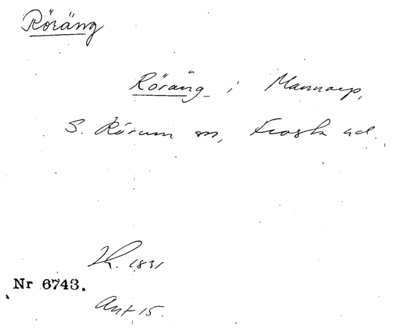 Röräng
Röräng i Mannarp,
S. Rörum sn, Frosta hd.
1831
Nr 6743.
Ant 15.